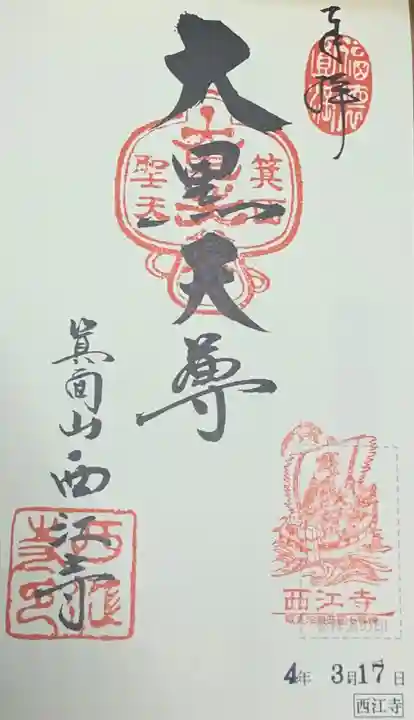 奉拝
大黒天尊
箕面
聖天
箕面山西江寺
西江寺
4年 3月17日
西江寺